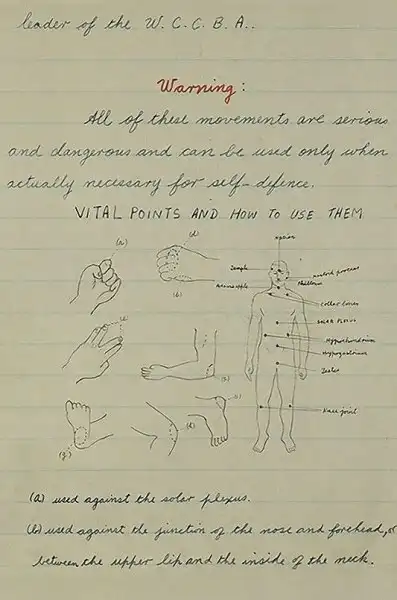 leader of the W. C. C. B. A..
Warning:
All of these movements are serious
and dangerous and can be used only when
actually necessary for self-defence.
VITAL POINTS AND HOW TO USE THEM
(a)
(d)
(b)
Temple
Mastoid process
Philtrum
Adams apple
Collar bones
SOLAR PLEXUS
Hypochondrium
Hypogastrium
Testes
Knee joint
(g)
(a) used against the solar plexus.
(b) used against the junction of the nose and forehead, or
between the upper lip and the inside of the neck.